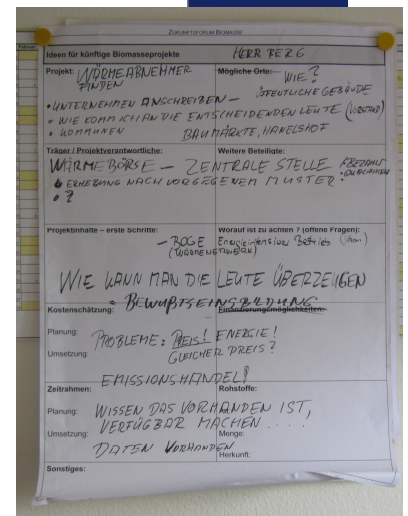 ZUKUNFTSFORUM BIOMASSE
Ideen für künftige Biomasseprojekte
HERR BERG
Projekt: WÄRMEABNEHMER
FINDEN
Mögliche Orte: WIE?
ÖFFENTLICHE GEBÄUDE
• UNTERNEHMEN ANSCHREIBEN –
• WIE KOMM ICH AN DIE ENTSCHEIDENDEN LEUTE (VORSTAND)
• KOMMUNEN
BAUMÄRKTE, HANELSHOF
Träger / Projektverantwortliche:
Weitere Beteiligte:
WÄRMEBÖRSE – ZENTRALE STELLE
BEZAHLT
• ERHEBUNG NACH VORGEGEBENEM MUSTER
• ?
Projektinhalte – erste Schritte:
Worauf ist zu achten ? (offene Fragen):
– BOGE
(WÄRMENETZWERK)
Energieintensive Betriebe
WIE KANN MAN DIE LEUTE ÜBERZEUGEN
• BEWUßTSEINSBILDUNG
Kostenschätzung:
Finanzierungsmöglichkeiten:
Planung:
PROBLEME: PREIS! ENERGIE!
Umsetzung:
GLEICHER PREIS?
EMISSIONSHANDEL!
Zeitrahmen:
Rohstoffe:
Planung:
WISSEN DAS VORHANDEN IST,
Umsetzung:
VERFÜGBAR MACHEN . . . .
Menge:
DATEN VORHANDEN
Herkunft:
Sonstiges: